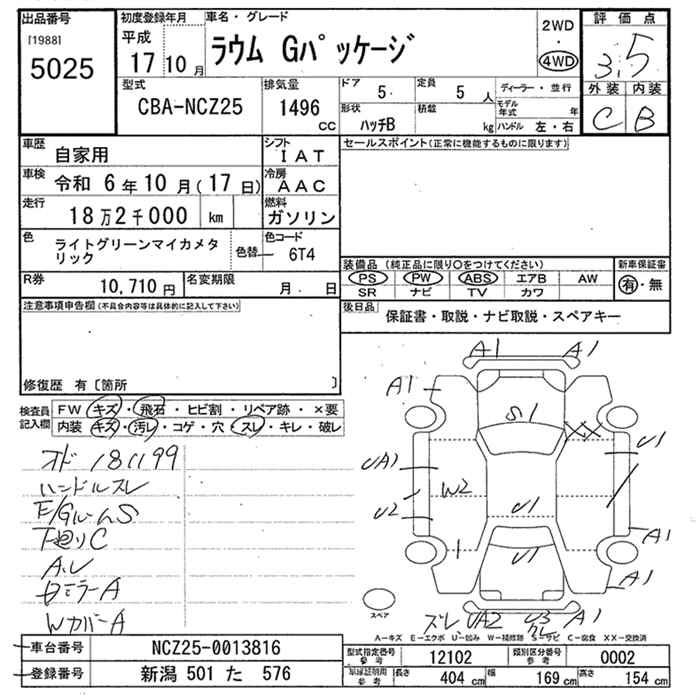 出品番号 [1988] 5025
初度登録年月 平成 17 10 月
車名・グレード ラウム Gパッケージ
2WD ・ 4WD
評価点 3.5
外装 C 内装 B
型式 CBA-NCZ25
排気量 1496 cc
ドア 5 定員 5 人
形状 ハッチB 積載 kg
ディーラー・並行
モデル年式 年
ハンドル 左・右
車歴 自家用
シフト IAT
セールスポイント(正常に機能するものに限ります)
車検 令和 6年10月(17日)
冷房 AAC
走行 18万2千000 km
燃料 ガソリン
色 ライトグリーンマイカメタリック
色替 ー
色コード 6T4
装備品(純正品に限り○をつけてください)
PS PW ABS エアB AW
SR ナビ TV カワ
新車保証書 有・無
R券 10,710円
名変期限 月 日
後日品 保証書・取説・ナビ取説・スペアキー
注意事項申告欄(不具合内容等は具体的に記入して下さい)
修復歴 有〔箇所 〕
検査員記入欄
FW キズ・飛石・ヒビ割・リペア跡・×要
内装 キズ・汚レ・コゲ・穴・スレ・キレ・破レ
オド 181199
ハンドルスレ
E/GルームS
下廻りC
A.L
ロミラーA
WカバーA
A1 A1
A1
S1
XX
U1
UA1
W2
U2
U1
A1
U1
A1
ズレ UA2 U3 クレ A1
スペア
A-キズ E-エクボ U-凹み W-補修跡 S-サビ C-腐食 XX-交換済
車台番号 NCZ25-0013816
登録番号 新潟 501 た 576
型式指定番号 参考 12102
類別区分番号 参考 0002
車庫証明用 参考 長さ 404 cm 幅 169 cm 高さ 154 cm